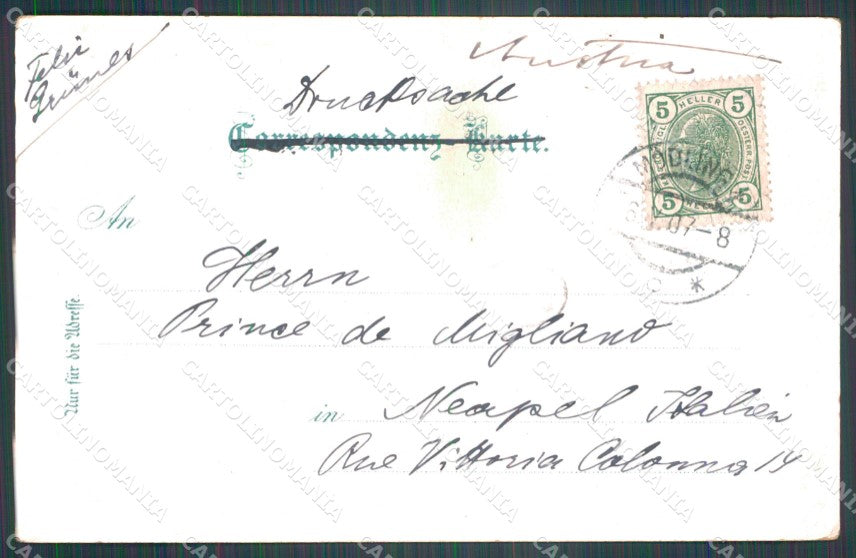 Felix
Grünes
Austria
Drucksache
Correspondenz-Karte.
5 HELLER 5
5 5
MÖDLING
07-8
*
An
Herrn
Prince de Migliano
in Neapel Italien
Rue Vittoria Colonna 14
Nur für die Adresse.
CARTOLINOMANIA